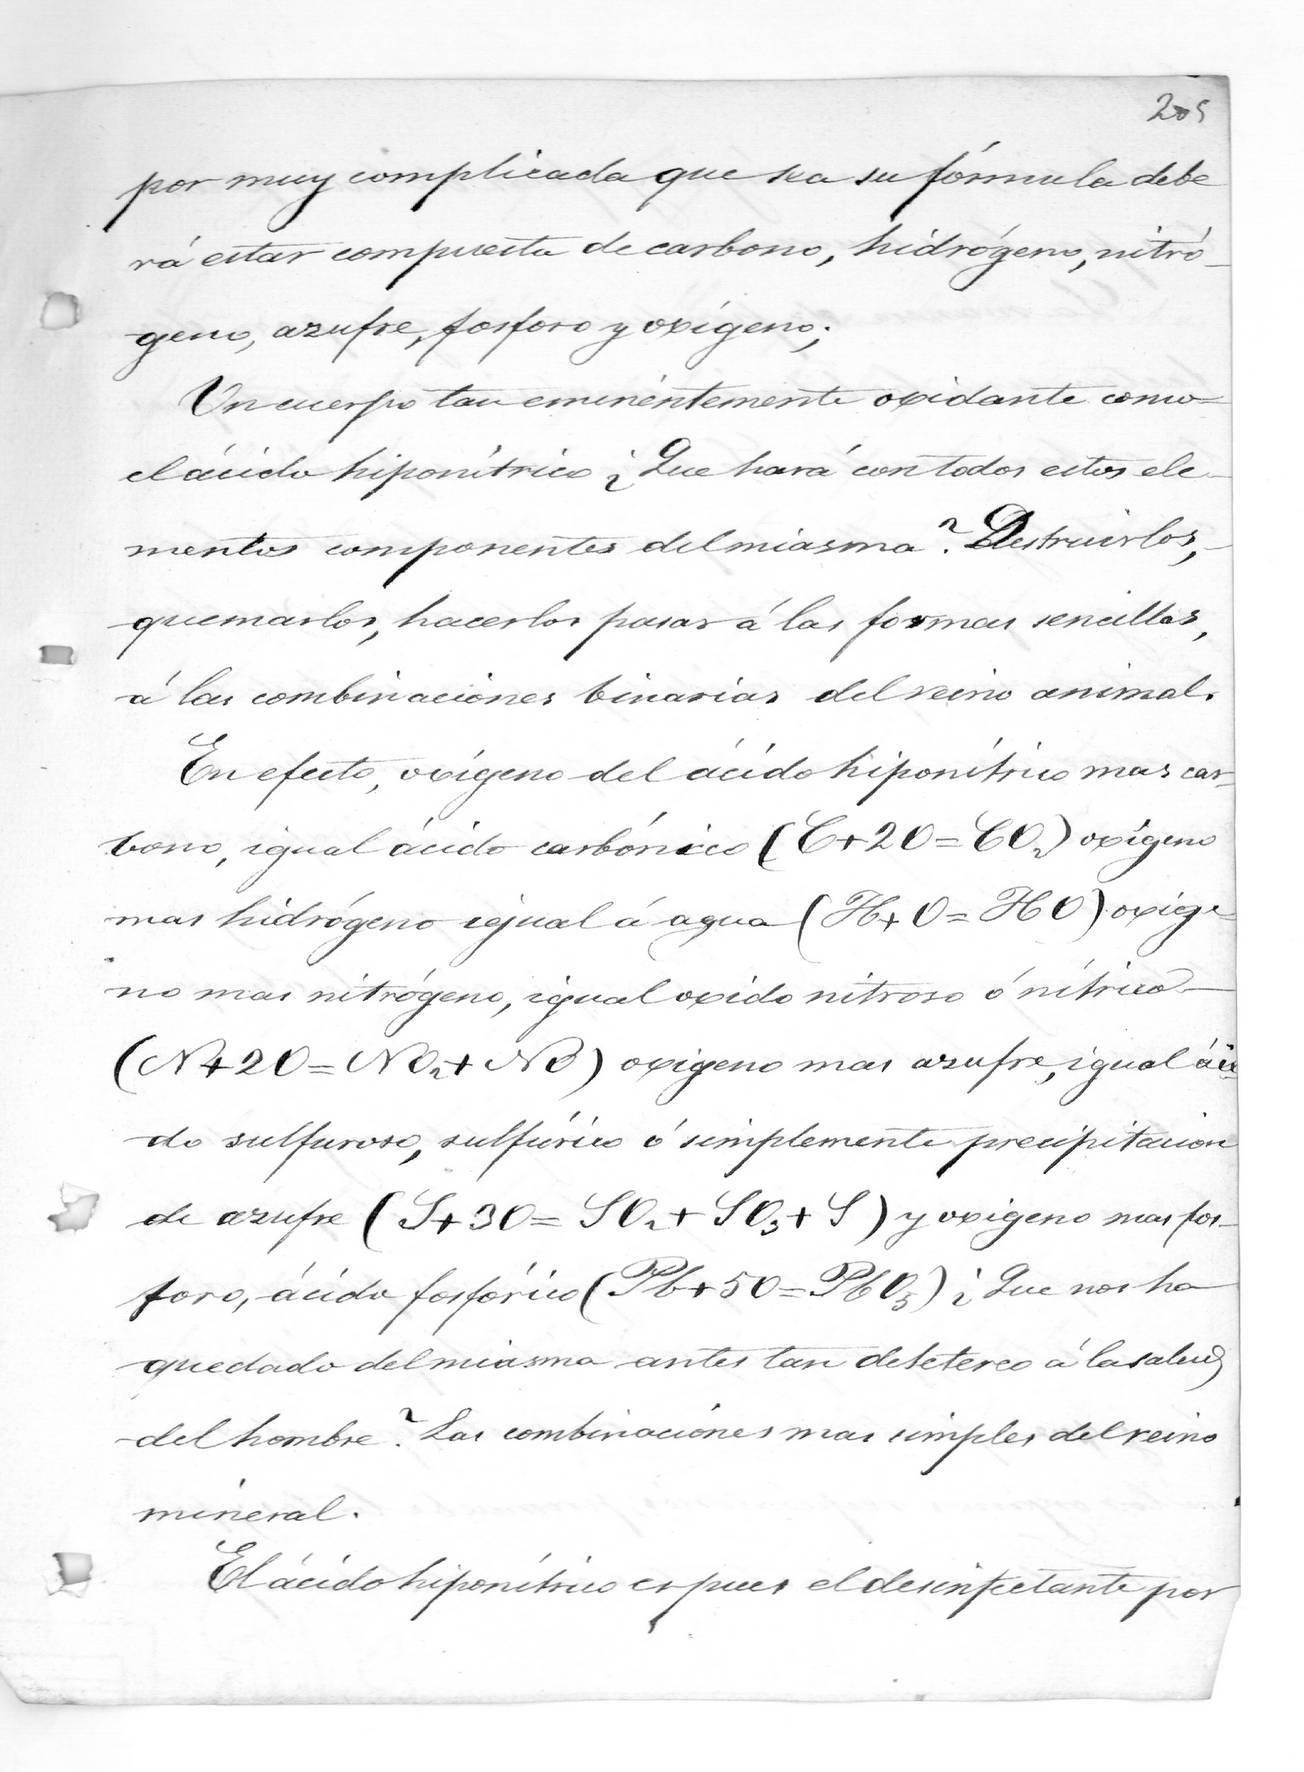 205
por muy complicada que sea su fórmula debe
rá estar compuesta de carbono, hidrógeno, nitró-
geno, azufre, fosforo y oxígeno;
Un cuerpo tan eminéntemente oxidante como
el ácido hiponítrico ¿Que hará con todos estos ele-
mentos componentes del miasma? Destruirlos,
quemarlos, hacerlos pasar á las formas sencillas,
á las combinaciones binarias del reino animal.
En efecto, oxígeno del ácido hiponítrico mas car-
bono, igual ácido carbónico (C+2O=CO2) oxígeno
mas hidrógeno igual á agua (H+O=HO) oxige-
no mas nitrógeno, igual oxido nitroso ó nítrico
(N+2O=NO2+NO) oxigeno mas azufre, igual áci-
do sulfuroso, sulfúrico ó simplemente precipitacion
de azufre (S+3O=SO2+SO3+S) y oxigeno mas fos-
foro, ácido fosfórico (Ph+5O=PhO5) ¿Que nos ha
quedado del miasma antes tan deletereo á la salud
del hombre? Las combinaciones mas simples del reino
mineral.
El ácido hiponítrico es pues el desinfectante por